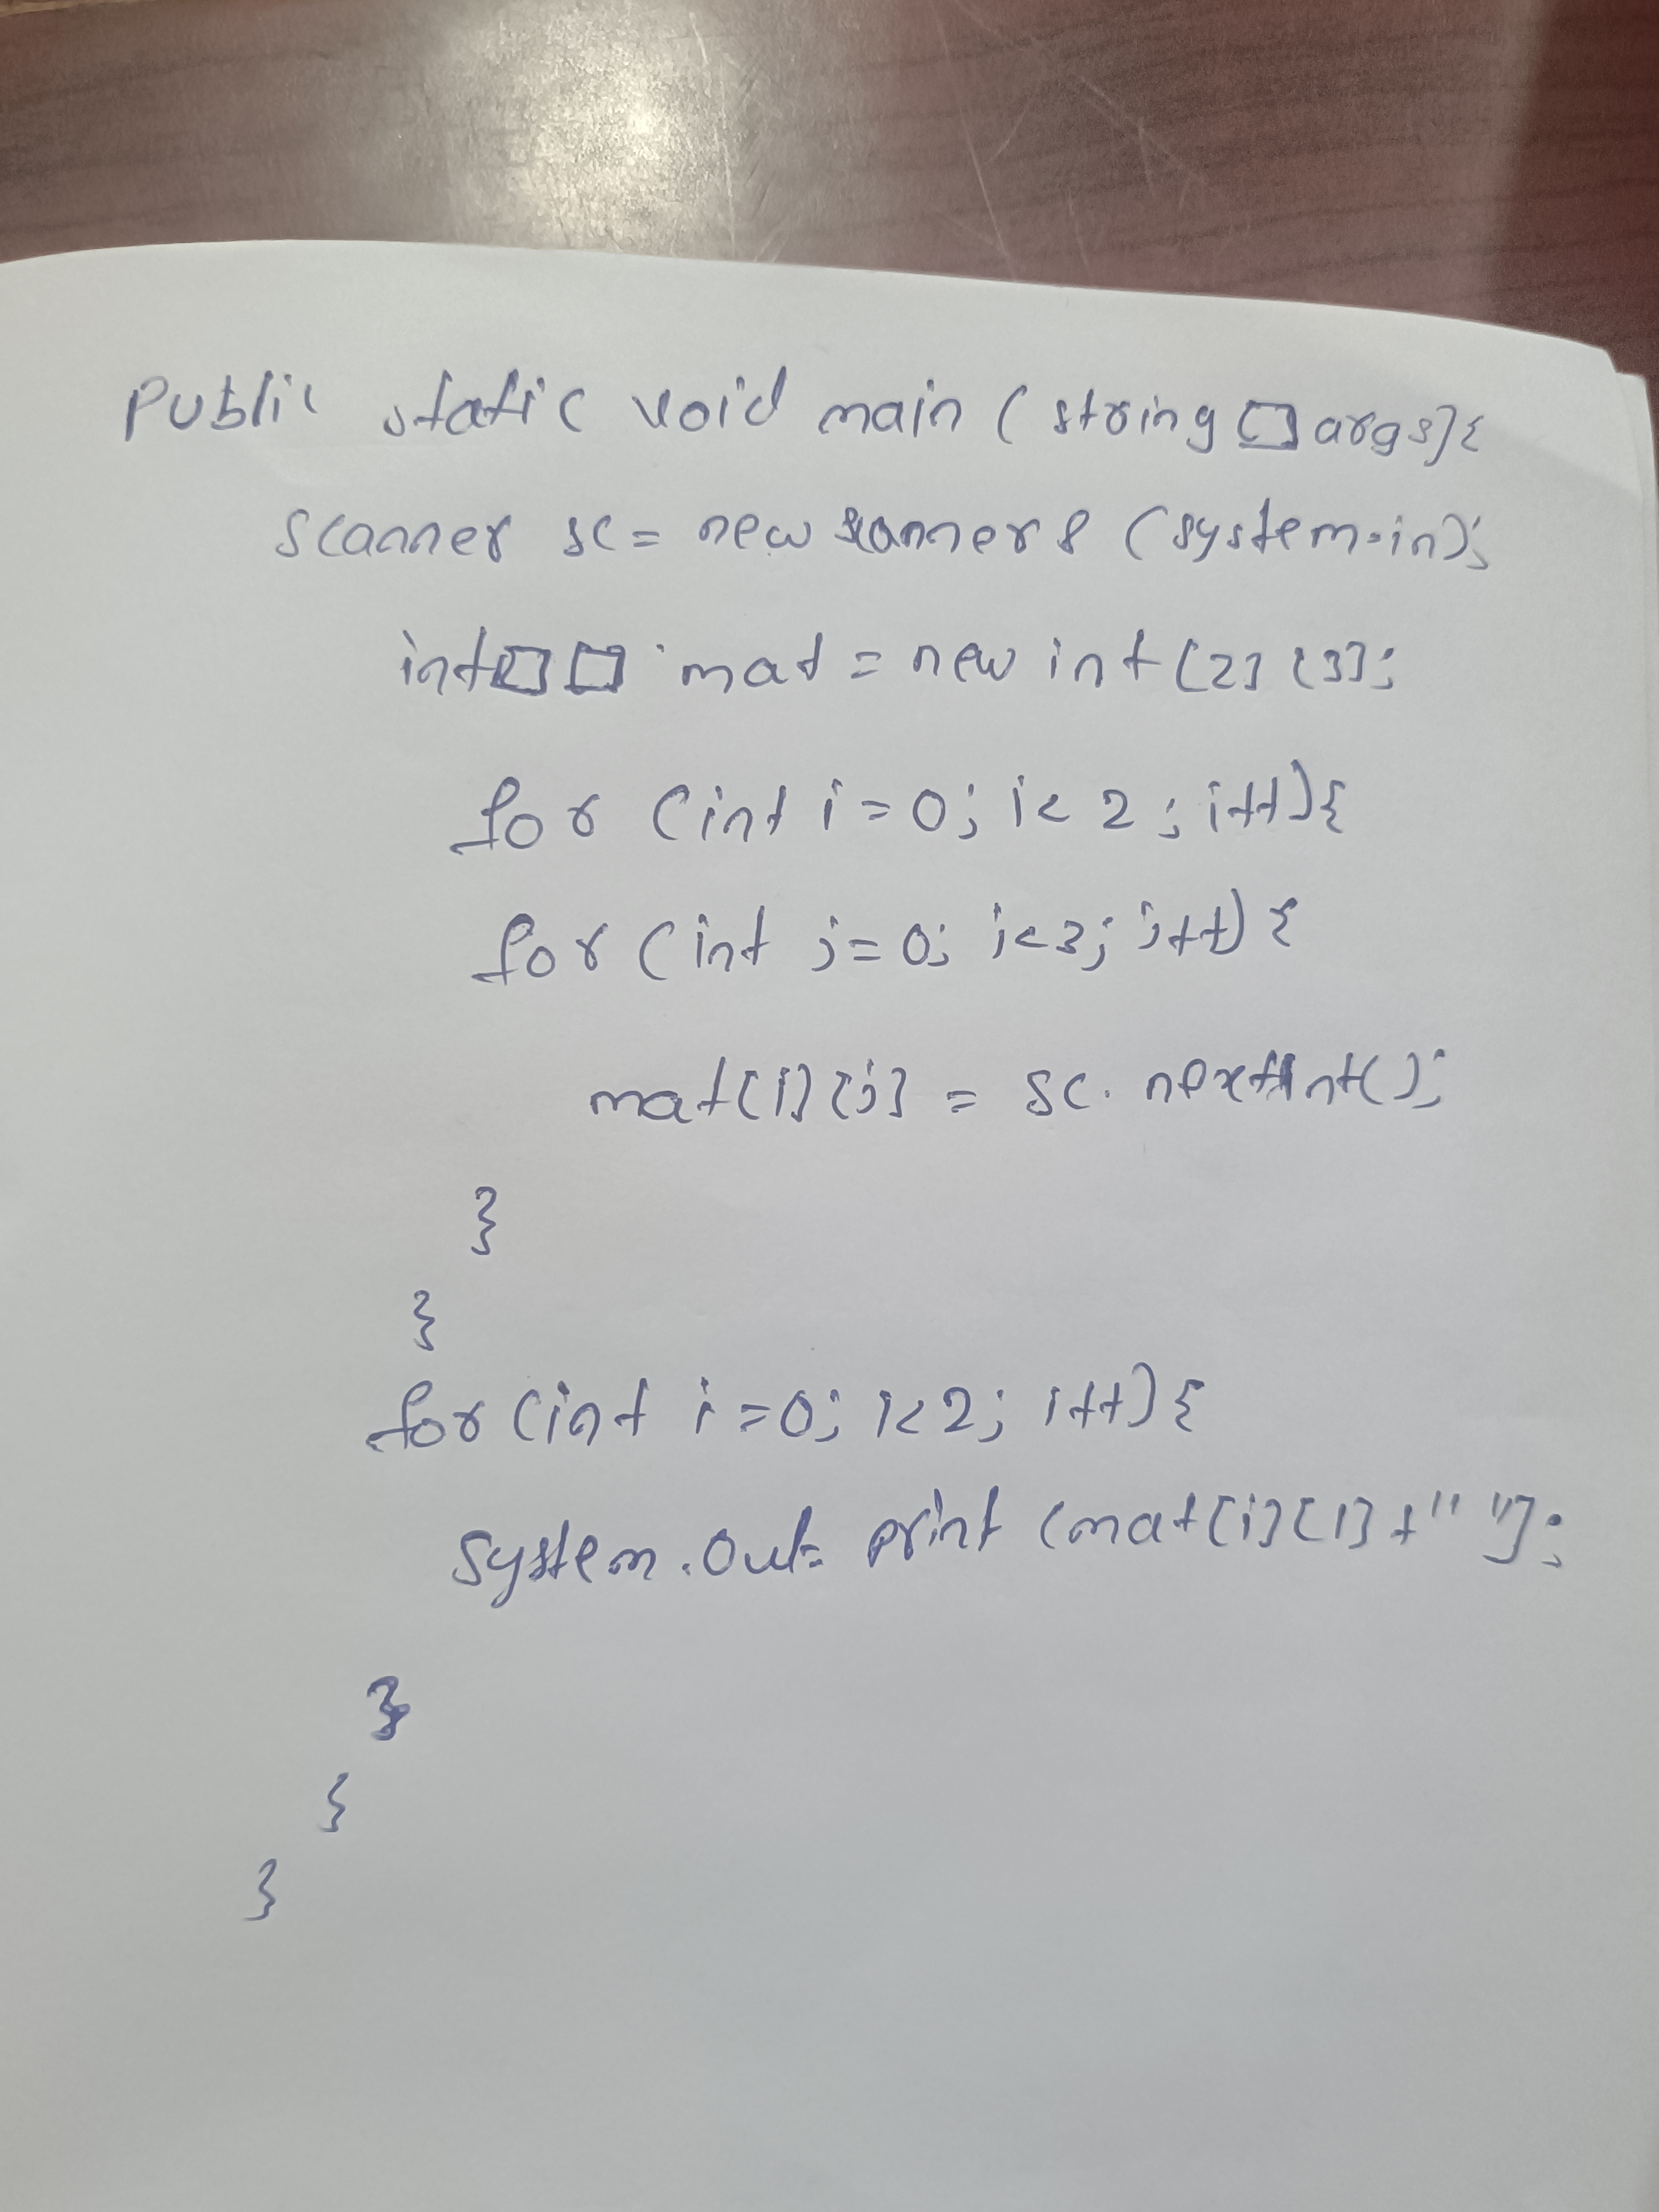 Public static void main (string [] args]{
Scanner sc = new scanner & (system.in);
int[][] mat = new int [2] [3];
for (int i = 0; i < 2 ; i++){
for (int j = 0; j < 3; j++) {
mat[i][j] = sc. nextInt();
}
}
for (int i = 0; i < 2; i++){
System.out. print (mat[i][1] + " "];
}
}
}